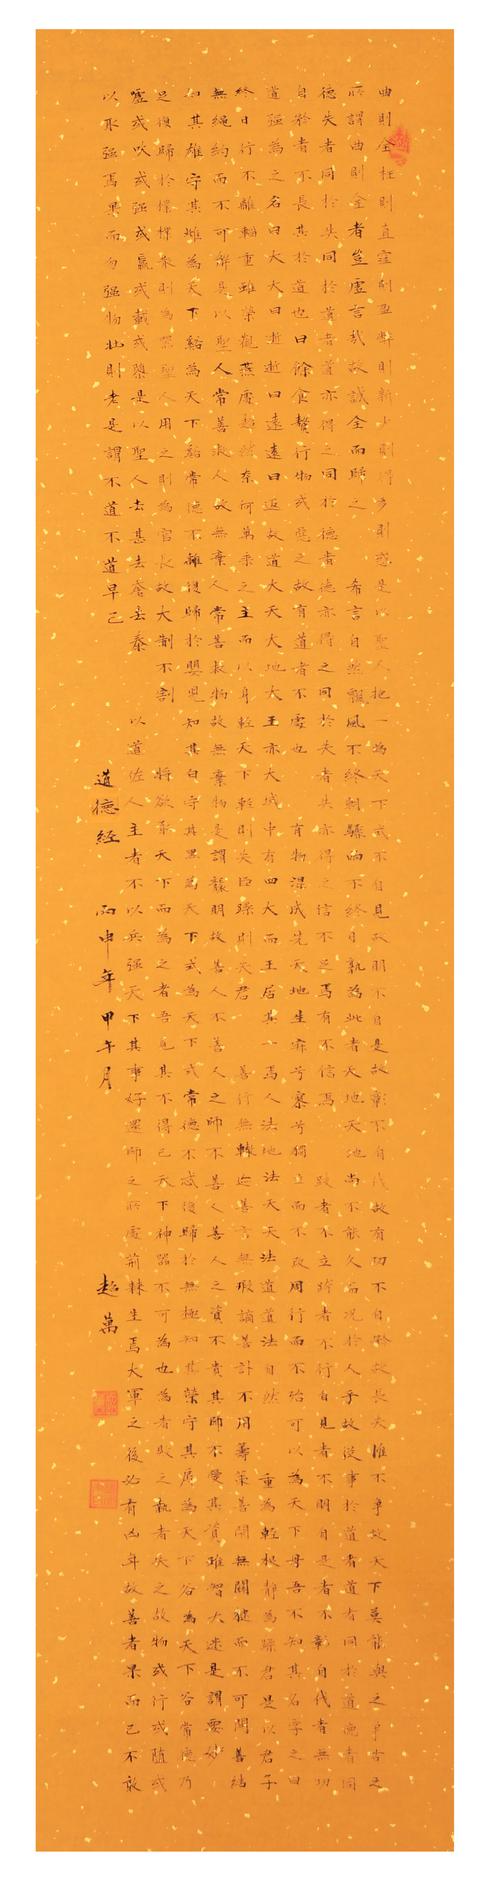 曲則全枉則直窪則盈弊則新少則得多則惑是以聖人抱一為天下式不自見故明不自是故彰不自伐故有功不自矜故長夫惟不爭故天下莫能與之爭古之
所謂曲則全者豈虛言哉故誠全而歸之　希言自然飄風不終朝驟雨不終日孰為此者天地天地尚不能久而況於人乎故從事於道者道者同於道德者同
德失者同於失同於道者道亦得之同於德者德亦得之同於失者失亦得之信不足焉有不信焉　跂者不立跨者不行自見者不明自是者不彰自伐者無功
自矜者不長其於道也曰餘食贅行物或惡之故有道者不處也　有物混成先天地生寂兮寥兮獨立而不改周行而不殆可以為天下母吾不知其名字之曰
道强為之名曰大大曰逝逝曰遠遠曰返故道大天大地大王亦大域中有四大而王居其一焉人法地法天天法道道法自然　重為輕根靜為躁君是以君子
終日行不離輜重雖榮觀燕處超然奈何萬乘之主而以身輕天下輕則失臣躁則失君　善行無轍迹善言無瑕謫善計不用籌策善閉無關揵而不可開善結
無繩約而不可解是以聖人常善救人故無棄人常善救物故無棄物是謂襲明故善人不善人之師不善人善人之資不貴其師不愛其資雖智大迷是謂要妙
知其雄守其雌為天下谿為天下谿常德不離復歸於嬰兒知其白守其黑為天下式為天下式常德不忒復歸於無極知其榮守其辱為天下谷為天下谷常德乃
足復歸於樸樸散則為器聖人用之則為官長故大制不割　將欲取天下而為之者吾見其不得已天下神器不可為也為者敗之執者失之故物或行或隨或
噓或吹或强或羸或載或隳是以聖人去甚去奢去泰　以道佐人主者不以兵强天下其事好還師之所處荊棘生焉大軍之後必有凶年故善者果而已不敢
以取强焉果而勿强物壯則老是謂不道不道早已　道德經　丙申年甲午月　趙萬